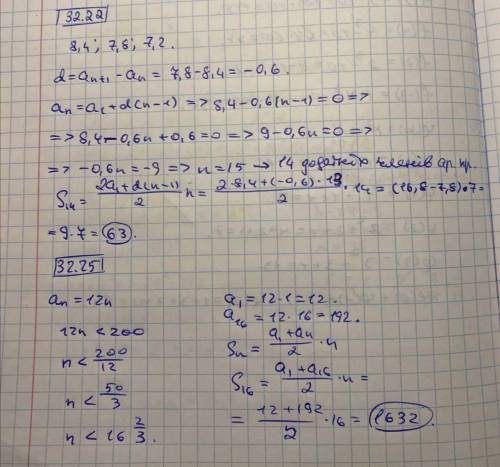 32.22
8,4; 7,8; 7,2.
d=aₙ₊₁-aₙ= 7,8-8,4=-0,6.
aₙ=a₁+d(n-1) => 8,4-0,6(n-1)=0=>
=> 8,4-0,6n+0,6=0 => 9-0,6n=0 =>
=> -0,6n=-9 => n=15 → 14 додатніх членів ар. пр.
S₁₄= (2a₁+d(n-1))/2 n= (2·8,4+(-0,6)·13)/2 · 14 = (16,8-7,8)·7=
=9·7= 63.
32.25
aₙ=12n
12n<200
n< 200/12
n< 50/3
n<16 2/3.
a₁=12·1=12.
a₁₆=12·16=192.
Sₙ= (a₁+aₙ)/2 ·n
S₁₆= (a₁+a₁₆)/2 ·n=
= (12+192)/2 ·16= 1632.